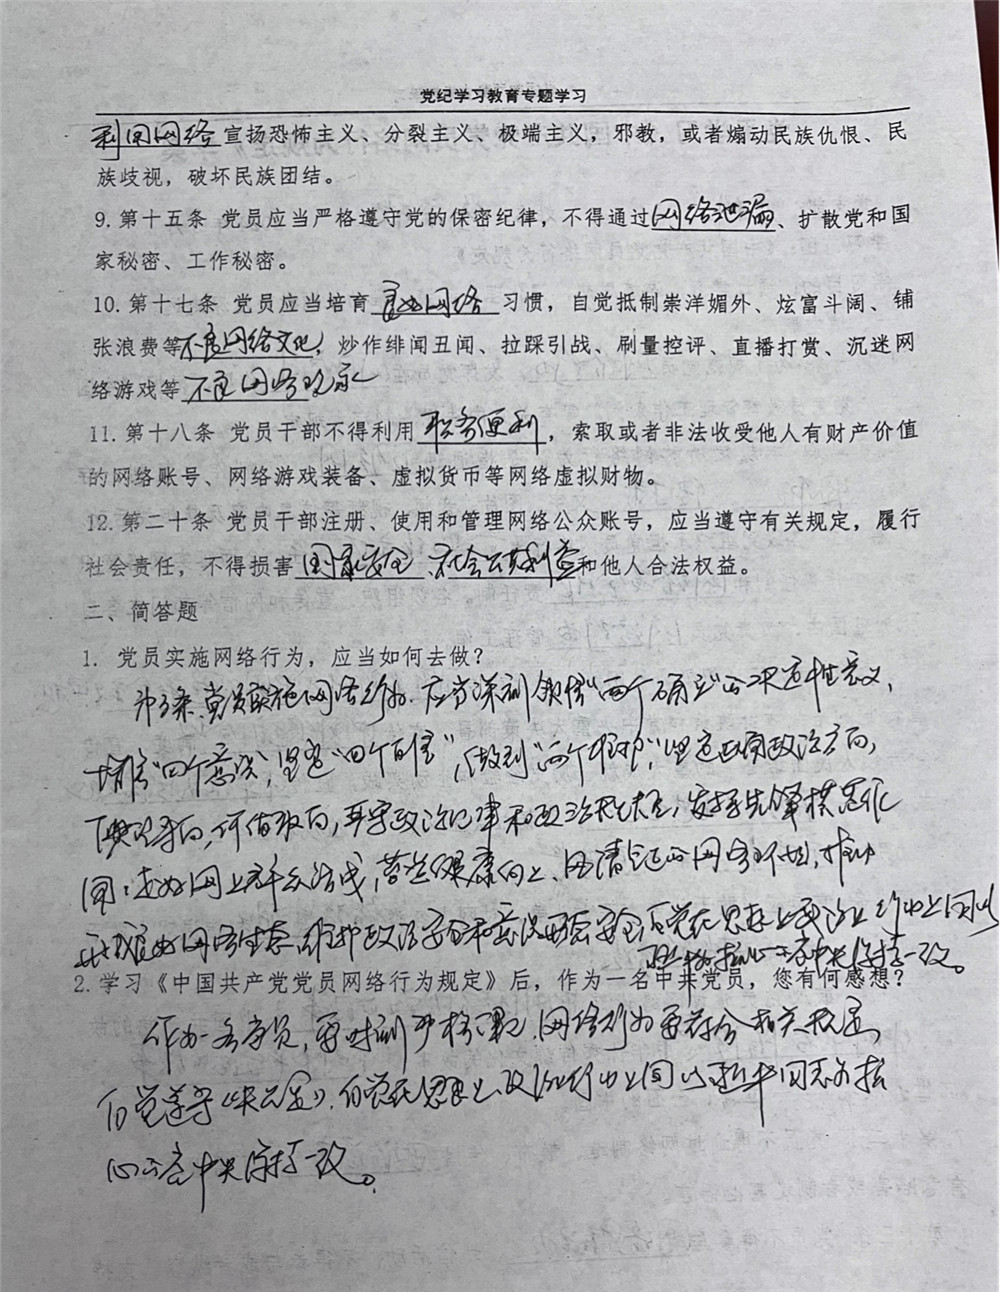 党纪学习教育专题学习
利用网络宣扬恐怖主义、分裂主义、极端主义，邪教，或者煽动民族仇恨、民
族歧视，破坏民族团结。
9.第十五条 党员应当严格遵守党的保密纪律，不得通过网络泄漏、扩散党和国
家秘密、工作秘密。
10.第十七条 党员应当培育良好网络习惯，自觉抵制崇洋媚外、炫富斗阔、铺
张浪费等不良网络文化，炒作绯闻丑闻、拉踩引战、刷量控评、直播打赏、沉迷网
络游戏等不良网络
11.第十八条 党员干部不得利用职务便利，索取或者非法收受他人有财产价值
的网络账号、网络游戏装备、虚拟货币等网络虚拟财物。
12.第二十条 党员干部注册、使用和管理网络公众账号，应当遵守有关规定，履行
社会责任，不得损害国家安全、社会公共利益和他人合法权益。
二、简答题
1. 党员实施网络行为，应当如何去做？
党员实施网络行为，应当深刻领悟“两个确立”的决定性意义，
增强“四个意识”，坚定“四个自信”，做到“两个维护”，坚定正确政治方向，
价值取向，严守政治纪律和政治规矩，发挥先锋模范作
用；走好网上群众路线，营造健康向上、风清气正的网络环境，推动
良好网络生态，维护政治安全和意识形态安全，自觉在思想上政治上行动上同以
核心的党中央保持一致。
2.学习《中国共产党党员网络行为规定》后，作为一名中共党员，您有何感想？
作为一名党员，要时刻严格，网络行为要符合相关规定，
自觉遵守，自觉在思想上、政治行动上同以近平同志为核
心的党中央保持一致。